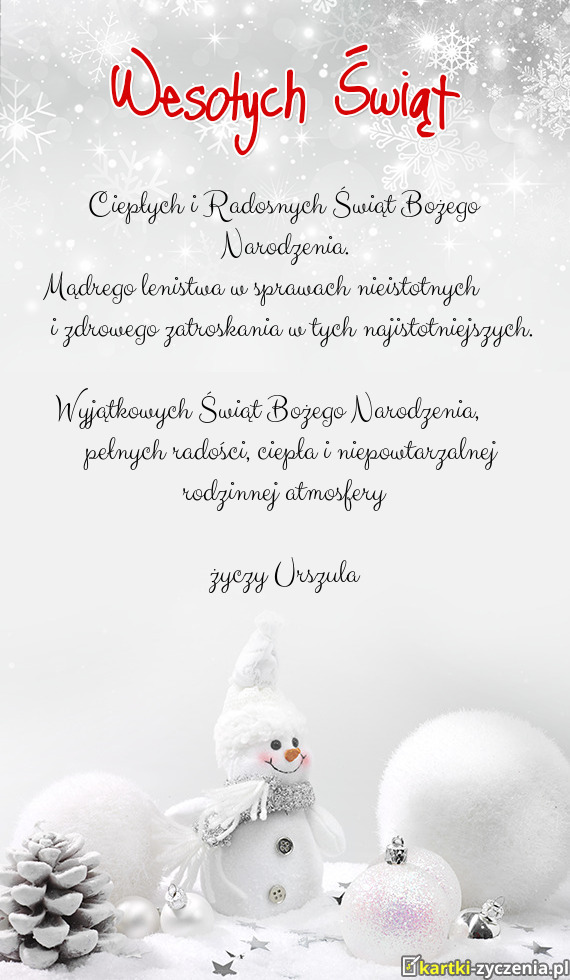 Wesołych Świąt
Ciepłych i Radosnych Świąt Bożego
Narodzenia.
Mądrego lenistwa w sprawach nieistotnych
i zdrowego zatroskania w tych najistotniejszych.
Wyjątkowych Świąt Bożego Narodzenia,
pełnych radości, ciepła i niepowtarzalnej
rodzinnej atmosfery
życzy Urszula
kartki-zyczenia.pl